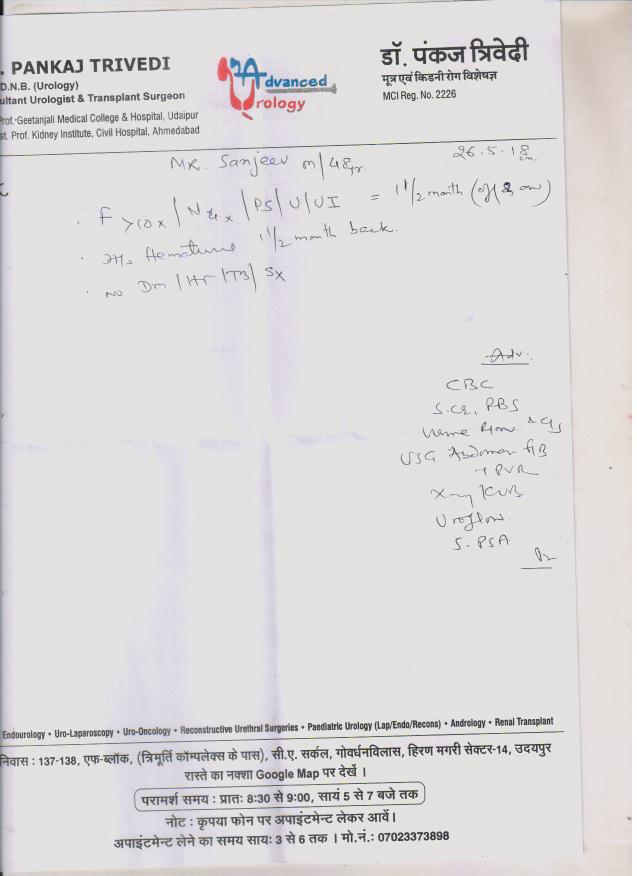 . PANKAJ TRIVEDI
D.N.B. (Urology)
ultant Urologist & Transplant Surgeon
Prof.-Geetanjali Medical College & Hospital, Udaipur
st. Prof. Kidney Institute, Civil Hospital, Ahmedabad
Advanced
Urology
डॉ. पंकज त्रिवेदी
मूत्र एवं किडनी रोग विशेषज्ञ
MCI Reg. No. 2226
MR. Sanjeev m/48yr.
26.5.18
F >10x / N 4x / PS / U / UI = 1 1/2 month (off & on)
H/o Hematuria 1 1/2 month back.
No Dm / HT / TB / Sx
Adv:
CBC
S.Cr, RBS
Urine
USG Abdomen
+ PVR
Xray KUB
Uroflow.
S. PSA
Endourology • Uro-Laparoscopy • Uro-Oncology • Reconstructive Urethral Surgeries • Paediatric Urology (Lap/Endo/Recons) • Andrology • Renal Transplant
निवास : 137-138, एफ-ब्लॉक, (त्रिमूर्ति कॉम्पलेक्स के पास), सी.ए. सर्कल, गोवर्धनविलास, हिरण मगरी सेक्टर-14, उदयपुर
रास्ते का नक्शा Google Map पर देखें ।
परामर्श समय : प्रातः 8:30 से 9:00, सायं 5 से 7 बजे तक
नोट : कृपया फोन पर अपाइंटमेन्ट लेकर आवें।
अपाइंटमेन्ट लेने का समय सायः 3 से 6 तक । मो.नं.: 07023373898